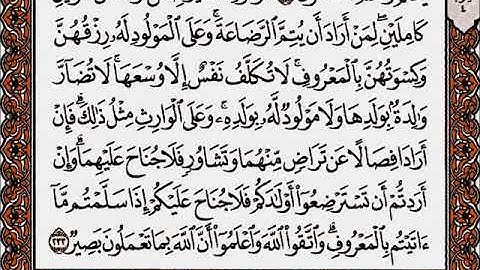 كَامِلَيْنِ ۖ لِمَنْ أَرَادَ أَن يُتِمَّ ٱلرَّضَاعَةَ ۚ وَعَلَى ٱلْمَوْلُودِ لَهُۥ رِزْقُهُنَّ
وَكِسْوَتُهُنَّ بِٱلْمَعْرُوفِ ۚ لَا تُكَلَّفُ نَفْسٌ إِلَّا وُسْعَهَا ۚ لَا تُضَآرَّ
وَٰلِدَةٌۢ بِوَلَدِهَا وَلَا مَوْلُودٌ لَّهُۥ بِوَلَدِهِۦ ۚ وَعَلَى ٱلْوَارِثِ مِثْلُ ذَٰلِكَ ۗ فَإِنْ
أَرَادَا فِصَالًا عَن تَرَاضٍ مِّنْهُمَا وَتَشَاوُرٍ فَلَا جُنَاحَ عَلَيْهِمَا ۗ وَإِنْ
أَرَدتُّمْ أَن تَسْتَرْضِعُوٓا۟ أَوْلَٰدَكُمْ فَلَا جُنَاحَ عَلَيْكُمْ إِذَا سَلَّمْتُم مَّآ
ءَاتَيْتُم بِٱلْمَعْرُوفِ ۗ وَٱتَّقُوا۟ ٱللَّهَ وَٱعْلَمُوٓا۟ أَنَّ ٱللَّهَ بِمَا تَعْمَلُونَ بَصِيرٌ ٢٣٣